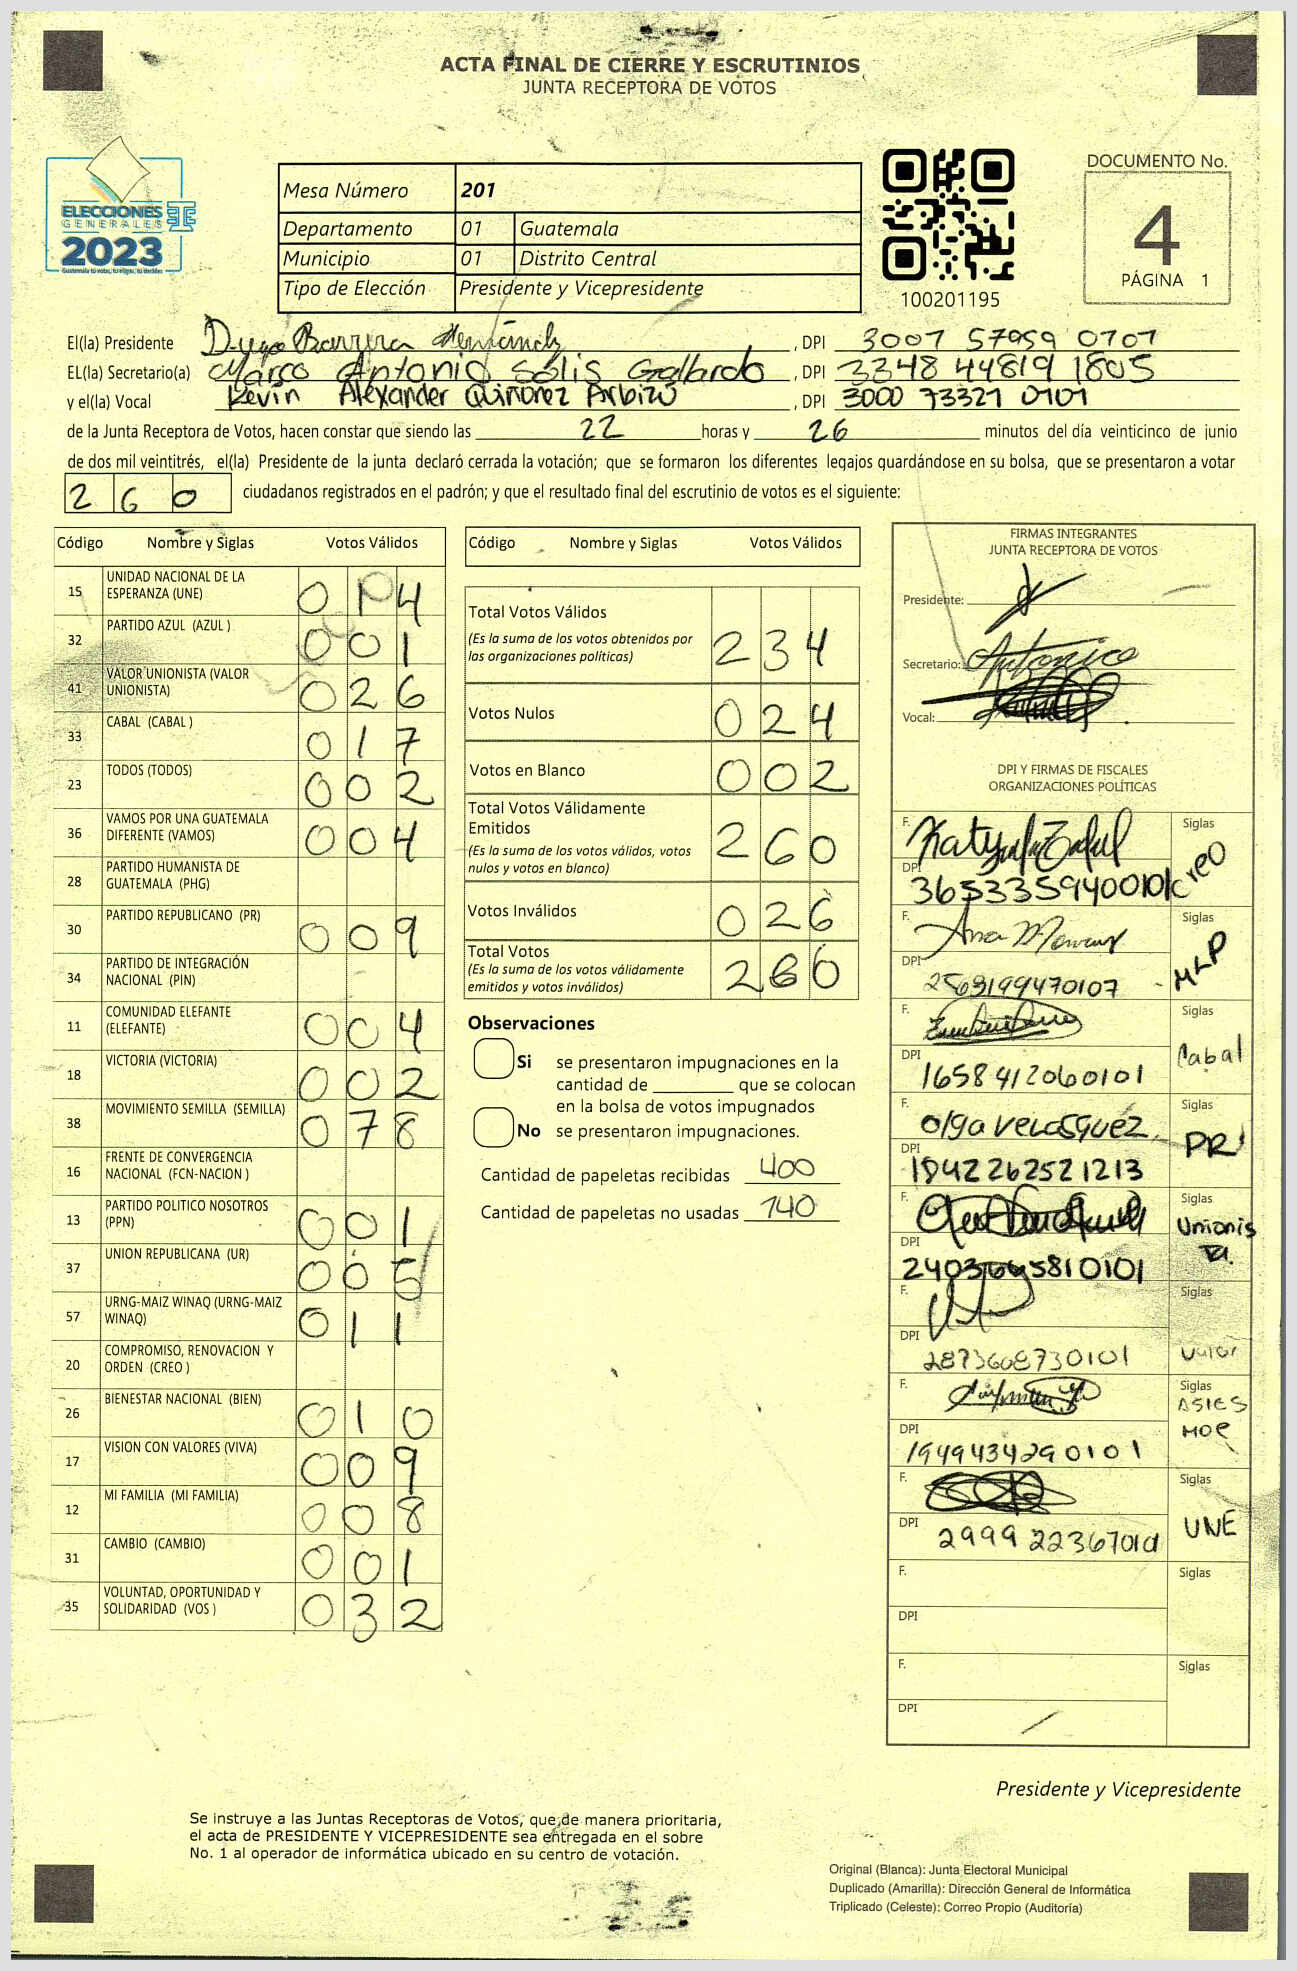 ACTA FINAL DE CIERRE Y ESCRUTINIOS
JUNTA RECEPTORA DE VOTOS
ELECCIONES
GENERALES
2023
Guatemala tú votas, tú eliges, tú decides
Mesa Número 201
Departamento 01 Guatemala
Municipio 01 Distrito Central
Tipo de Elección Presidente y Vicepresidente
100201195
DOCUMENTO No.
4
PÁGINA 1
El(la) Presidente Diego Barrera Hernández, DPI 3007 57959 0707
EL(la) Secretario(a) Marco Antonio Solis Gallardo, DPI 3348 44819 1805
y el(la) Vocal Kevin Alexander Quiñonez Arbizú, DPI 3000 73321 0101
de la Junta Receptora de Votos, hacen constar que siendo las 22 horas y 26 minutos del día veinticinco de junio
de dos mil veintitrés, el(la) Presidente de la junta declaró cerrada la votación; que se formaron los diferentes legajos guardándose en su bolsa, que se presentaron a votar
260 ciudadanos registrados en el padrón; y que el resultado final del escrutinio de votos es el siguiente:
Código Nombre y Siglas Votos Válidos
15 UNIDAD NACIONAL DE LA ESPERANZA (UNE) 014
32 PARTIDO AZUL (AZUL ) 001
41 VALOR UNIONISTA (VALOR UNIONISTA) 026
33 CABAL (CABAL ) 017
23 TODOS (TODOS) 002
36 VAMOS POR UNA GUATEMALA DIFERENTE (VAMOS) 004
28 PARTIDO HUMANISTA DE GUATEMALA (PHG)
30 PARTIDO REPUBLICANO (PR) 009
34 PARTIDO DE INTEGRACIÓN NACIONAL (PIN)
11 COMUNIDAD ELEFANTE (ELEFANTE) 004
18 VICTORIA (VICTORIA) 002
38 MOVIMIENTO SEMILLA (SEMILLA) 078
16 FRENTE DE CONVERGENCIA NACIONAL (FCN-NACION )
13 PARTIDO POLITICO NOSOTROS (PPN) 001
37 UNION REPUBLICANA (UR) 005
57 URNG-MAIZ WINAQ (URNG-MAIZ WINAQ) 011
20 COMPROMISO, RENOVACION Y ORDEN (CREO )
26 BIENESTAR NACIONAL (BIEN) 010
17 VISION CON VALORES (VIVA) 009
12 MI FAMILIA (MI FAMILIA) 008
31 CAMBIO (CAMBIO) 001
35 VOLUNTAD, OPORTUNIDAD Y SOLIDARIDAD (VOS ) 032
Código Nombre y Siglas Votos Válidos
Total Votos Válidos 234
(Es la suma de los votos obtenidos por
las organizaciones políticas)
Votos Nulos 024
Votos en Blanco 002
Total Votos Válidamente
Emitidos 260
(Es la suma de los votos válidos, votos
nulos y votos en blanco)
Votos Inválidos 026
Total Votos
(Es la suma de los votos válidamente
emitidos y votos inválidos)
Observaciones
Si se presentaron impugnaciones en la
cantidad de ________ que se colocan
en la bolsa de votos impugnados
No se presentaron impugnaciones.
Cantidad de papeletas recibidas 400
Cantidad de papeletas no usadas 140
FIRMAS INTEGRANTES
JUNTA RECEPTORA DE VOTOS
Presidente:
Secretario: Antonio
Vocal:
DPI Y FIRMAS DE FISCALES
ORGANIZACIONES POLÍTICAS
F. Siglas
DPI 3653359400101 creo
F. Siglas
DPI 2569199470107 MLP
F. Siglas
DPI 1658412060101 Cabal
F. Olga Velasquez Siglas
DPI 1842262521213 PR
F. Siglas
DPI Unionista
F. Siglas
DPI 2873608730101 Valor
F. Siglas
DPI 1949434290101 ASIES MOE
F. Siglas
DPI UNE
F. Siglas
DPI
F. Siglas
DPI
Presidente y Vicepresidente
Se instruye a las Juntas Receptoras de Votos, que de manera prioritaria,
el acta de PRESIDENTE Y VICEPRESIDENTE sea entregada en el sobre
No. 1 al operador de informática ubicado en su centro de votación.
Original (Blanca): Junta Electoral Municipal
Duplicado (Amarilla): Dirección General de Informática
Triplicado (Celeste): Correo Propio (Auditoría)